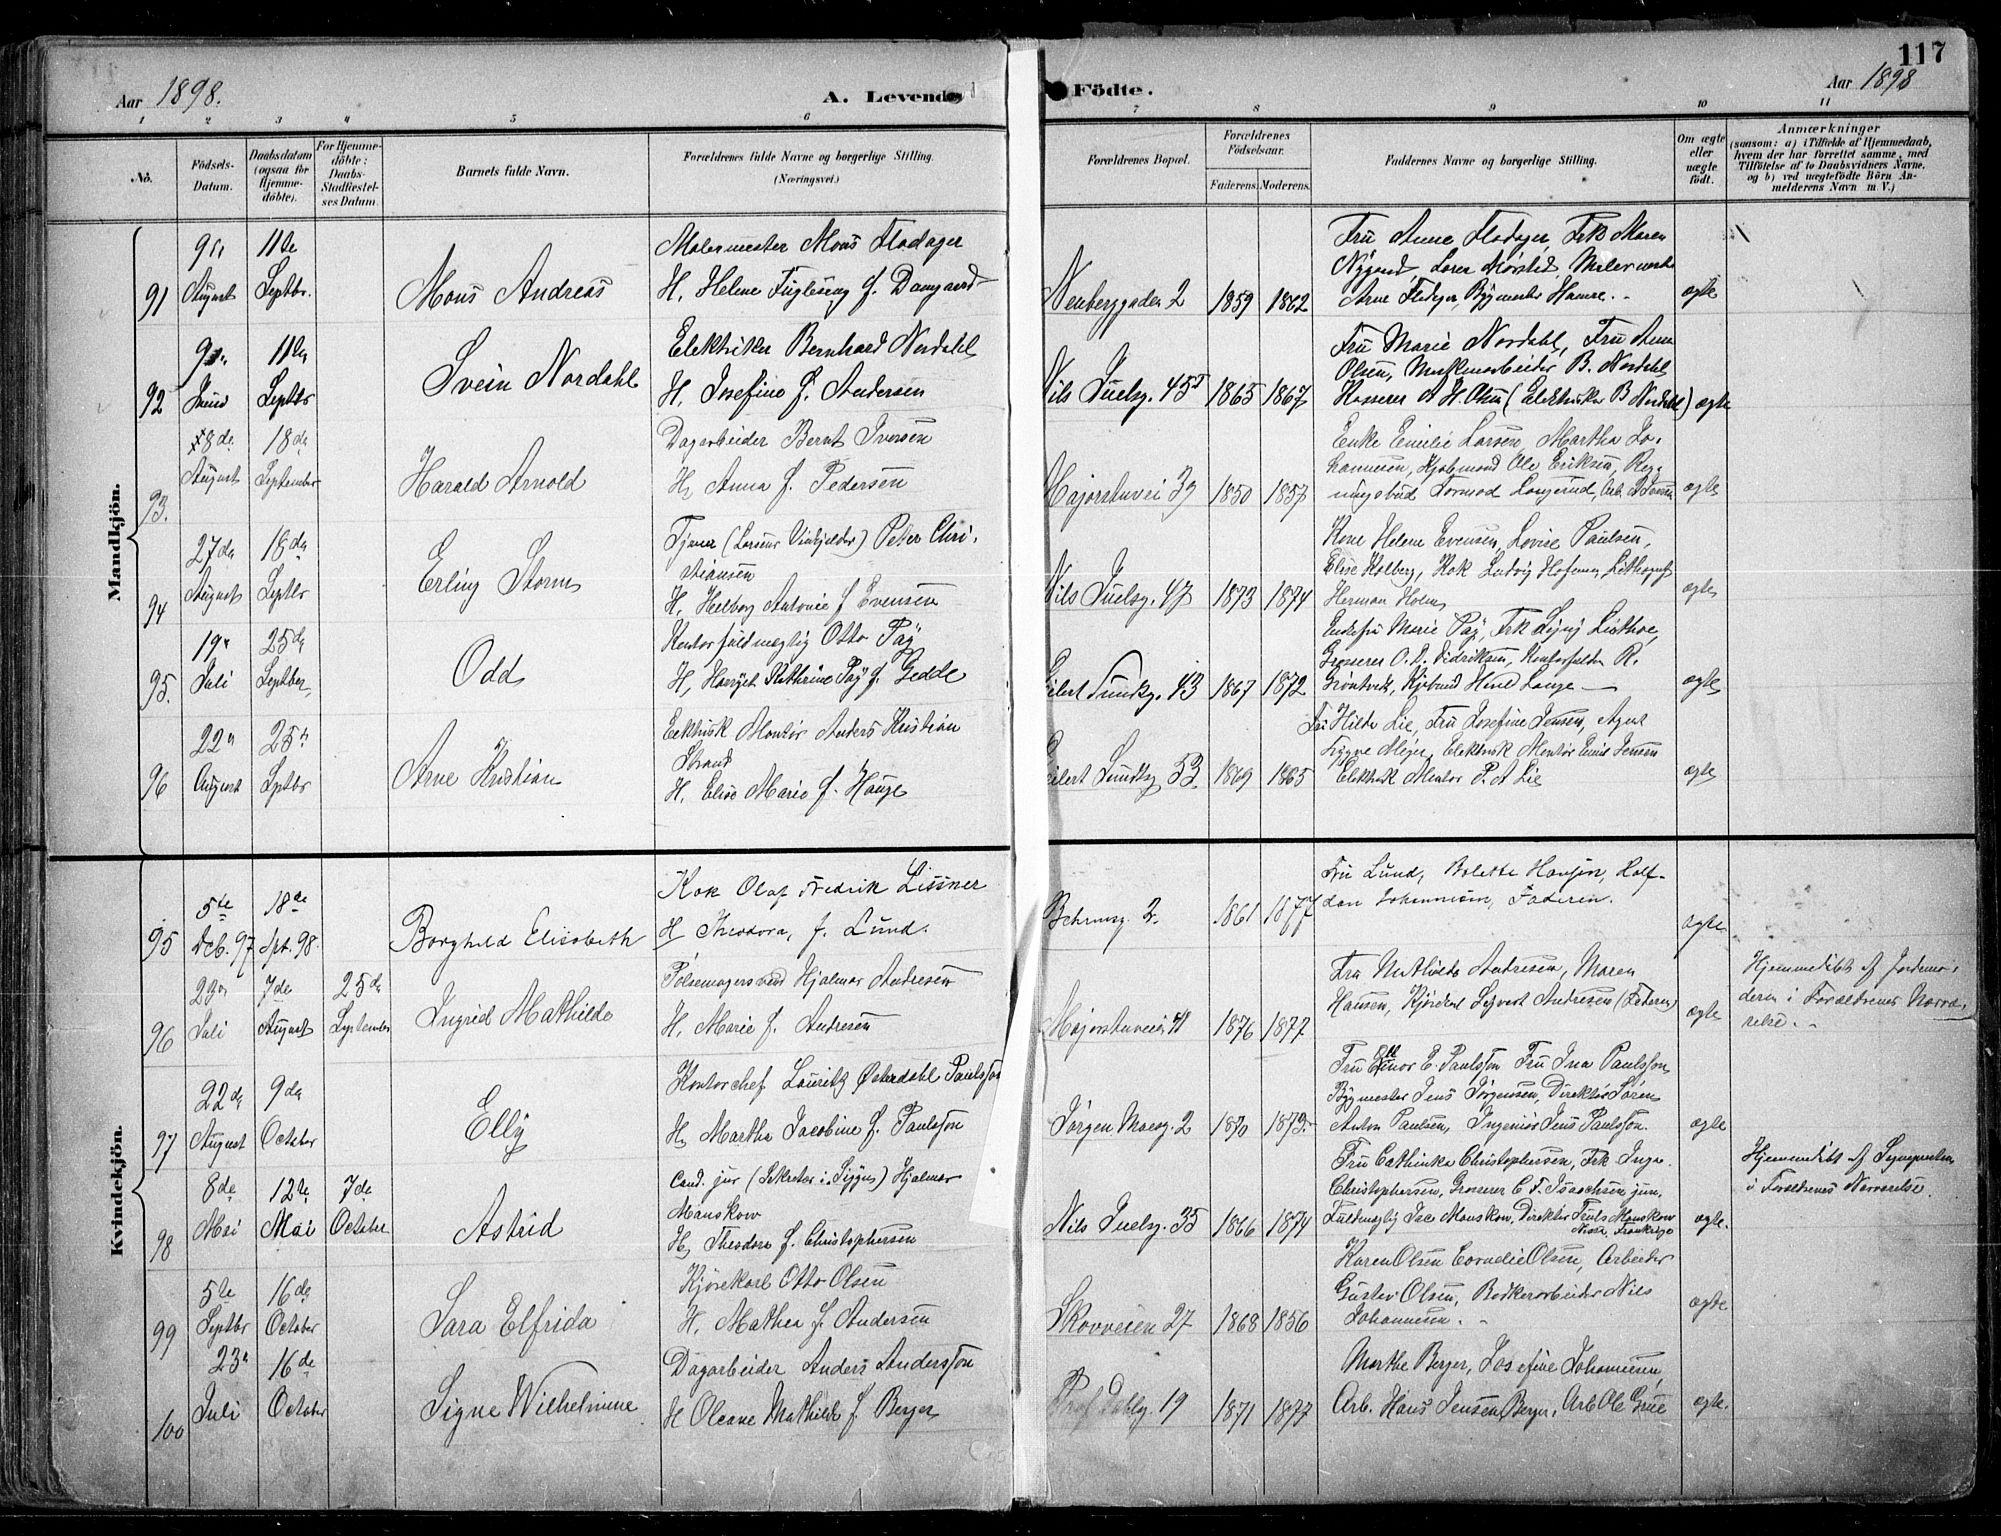 117
Aar 1898.
A. Levende
Födte.
Aar 1898
1 2 3 4 5 6 7 8 9 10 11
No.
Födsels-Datum.
Daabsdatum (ogsaa for Hjemmedöbte).
For Hjemmedöbte: Daabs-Stadfæstelses Datum.
Barnets fulde Navn.
Forældrenes fulde Navne og borgerlige Stilling.
(Næringsvei.)
Forældrenes Bopæl.
Forældrenes Födselsaar.
Faderens. Moderens.
Faddernes Navne og borgerlige Stilling.
Om ægte eller uægte födt.
Anmærkninger
(saasom: a) i Tilfælde af Hjemmedaab, hvem der har forrettet samme, med Tilföielse af to Daabsvidners Navne, og b) ved uægtefödte Börn Anmelderens Navn m V.)
Mandkjön.
91 9de August 11te Septbr. Mons Andreas
Malermester Mons Flodager
H. Helene Fuglesang f. Damgaard
2 1859 1862
Fru Anne Flodager, Frk Maren
Nygaard,
Arne Flodager, Bygmester Hamre. -
ægte
92 Juni 11te Septbr Svein Nordahl
Elektriker Bernhard Nordahl
H. Josefine f. Andersen
Nils Juelsg. 45 1865 1867
Fru Marie Nordahl, Fru Anna
Olsen, Maskinarbeider B. Nordahl
Kasserer A H. Olsen (Elektriker B Nordahl) ægte
93. 8de August 18de September Harald Arnold
Dagarbeider Bernt Iversen
H, Anna f. Pedersen
Majorstuvei 39 1850 1857
Enke Emilie Larsen, Martha Johannesen, Ole Eriksen,
ægte
94 27de August 18de Septbr Erling Storm
Tjener (Larsens Vinkjelder) Peter Christiansen
H. Helborg Antonie f Evensen
Nils Juelsg. 47 1873 1874
Kone Helene Evensen, Lovise Paulsen,
Elise Kolberg, Kok Ludvig Lithograf
Herman Holm
ægte
95. 19de Juli 25de Septber, Odd
Kontorfuldmægtig Otto Pay
H, Kathrine Pay f. Gedde
Eilert Sundtsg. 43 1867 1872
Enkefru Marie Pay, Frk
Grosserer O. D. Didriksen, R.
Lange -
ægte
96 22de August 25de Septbr Arne Kristian
Elektrisk Montör Anders Kristian
Strand
H. Elise Marie f. Hauge
Eilert Sundtsg 53. 1869 1865
Fru Hilda Lie, Fru Josefine Jensen, Agent
Meyer, Elektrisk Montör Emil Jensen
Elektrisk Montör P. A Lie
ægte
Kvindekjön.
95 5te Dcb. 97 18de Spt. 98. Borghild Elisabeth
Kok Olaf Fredrik Lissner
H Theodora, f. Lund.
Behrensg. 2. 1861 1877
Fru Lund, Bolette Hansen, Halfdan Johannesen, Faderen.
ægte
96 23de Juli 7de August 25de September Ingrid Mathilde
Pölsemagersvend Hjalmar Andresen
H. Marie f. Andresen
Majorstuveien 41 1876 1877
Fru Mathilde Andresen, Maren
Hansen, Andresen (Faderen)
ægte
Hjemmedöbt af Jordemoderen i Forældrenes Nærværelse. -
97 22de August 9de October Elly
Kontorchef Lauritz Østerdahl Paulsson
H, Martha Jacobine f. Paulsson
Jörgen Moesg. 2 1870 1873.
Fru Ellinor E. Paulsson Fru Ina Paulsson,
Bygmester Jens Jörgensen, Direktör Sören
Anton Paulsen, Ingeniör Jens Paulsson.
ægte
98 8de Mai 12te Mai 7de October Astrid
Cand. jur (Sekretær i ) Hjalmar
Manskow
H, Theodora f. Christophersen
Nils Juelsg. 35 1866 1874
Fru Cathinka Christophersen, Frk Inga
Christophersen, Grosserer C F. Isaachsen jun.
Fuldmægtig Manskow, Direktör Manskow
Frankrige
ægte.
Hjemmedöbt af Sognepresten
i Forældrenes Nærværelse.
99 5te Septbr 16de October Sara Elfrida
Kjörekarl Otto Olsen
H. Mathea f. Andersen
Skovveien 27 1868 1856
Karen Olsen Cornelie Olsen, Arbeider
Gustav Olsen, Bödkerarbeider Nils
Johannesen. -
ægte
100 23de Juli 16de October Signe Wilhelmine
Dagarbeider Anders Andersson
H Oleane Mathilde f. Berger
Prof Dahlsg. 19 1871 1877
Marthe Berger, Josefine Johannesen,
Arb. Hans Jensen Berger, Arb Ole Grue
ægte.